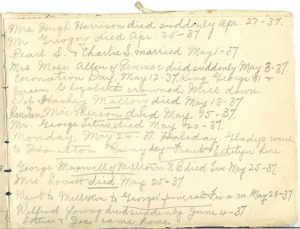 Mrs Hough Harrison died suddenly Apr. 27-37.
Mr. Gregory died Apr. 25-37
Pearl S. & Charlie S. married May 1-37
Mrs Mose Allen of Penmac died suddenly May 3-37
Coronation Day. May 12-37 King George VI &
Queen Elizabeth crowned, Well done.
Hastey Mallory died May 13-37
MacPherson died May 15-37
Mr George died May 20-37
Monday May 24-37 Holiday. Gladys went
to Houlton Rainy day Frank & Edith here
George Maxwell of Milltown N.B died Tue May 25-37
Mrs Lovitt died May 25-37
Went to Milltown to George funeral May 28-37
Wilfred Young died suddenly June 4-37
& Joe came home